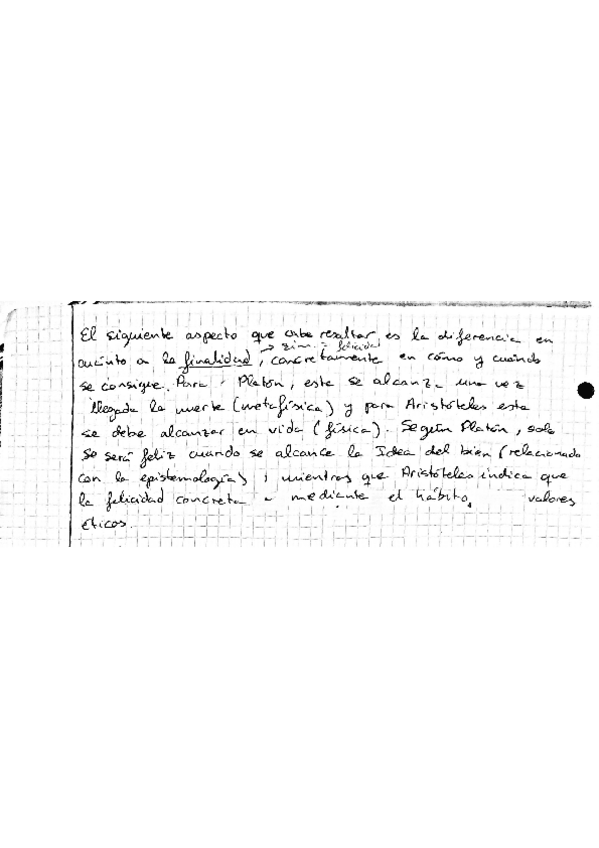 El siguiente aspecto que cabe resaltar, es la diferencia en
cuánto a la finalidad, concretamente en cómo y cuándo
se consigue. Para Platón, este se alcanza una vez
llegada la muerte (metafísica) y para Aristóteles esta
se debe alcanzar en vida (física). Según Platón, solo
se será feliz cuando se alcance la Idea del bien (relacionado
con la epistemología), mientras que Aristóteles indica que
la felicidad concreta mediante el hábito, valores
éticos.